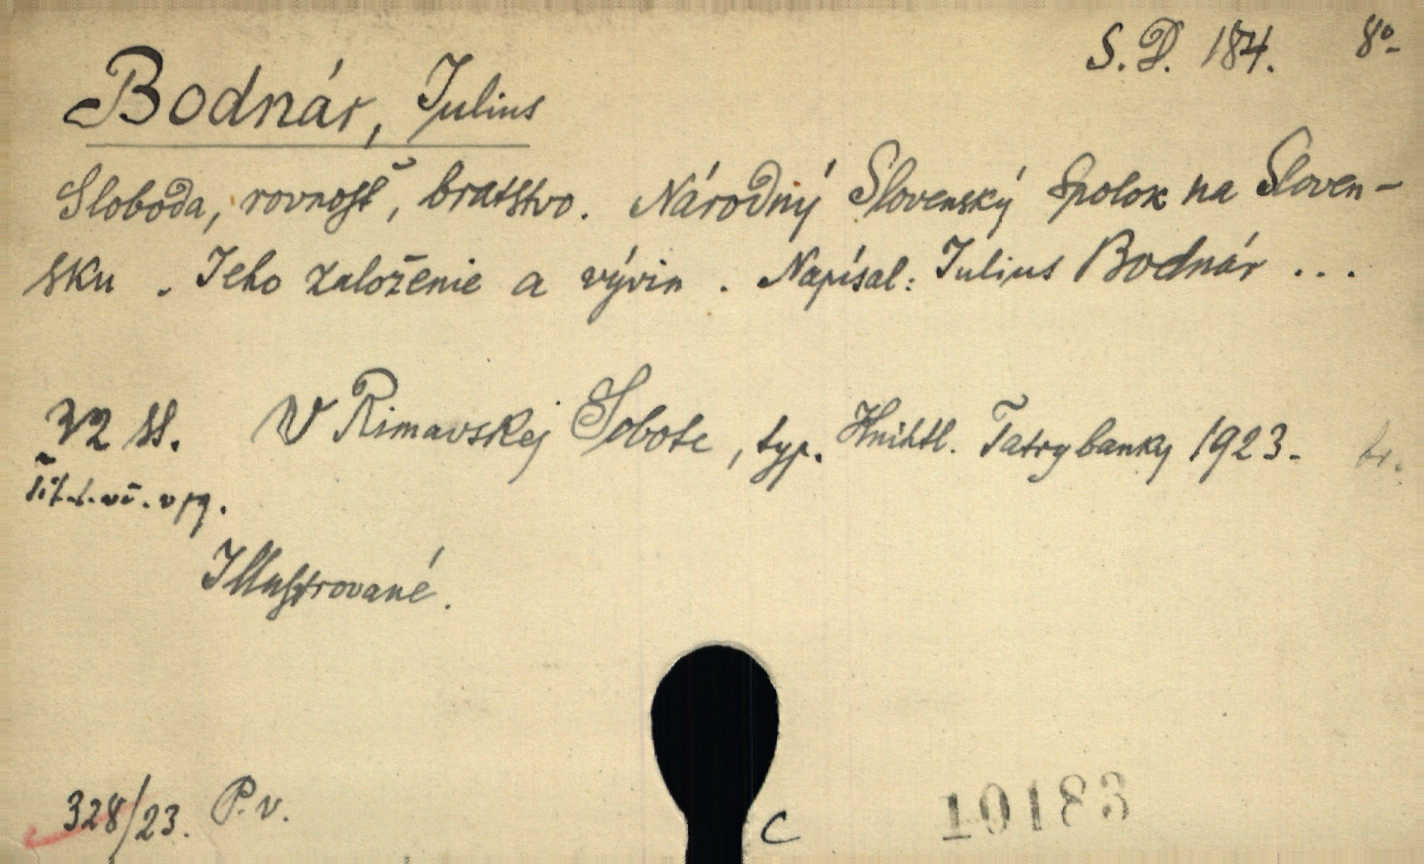 S. D. 184. 8°-
Bodnár, Julius
Sloboda, rovnosť, bratstvo. Národný Slovenský Spolok na Sloven-
sku. Jeho založenie a vývin. Napísal: Julius Bodnár ...
32 ss. V Rimavskej Sobote, typ. Knihtl. Tatrybanky 1923. br.
Illustrované.
328/23. P. v.
C
10183